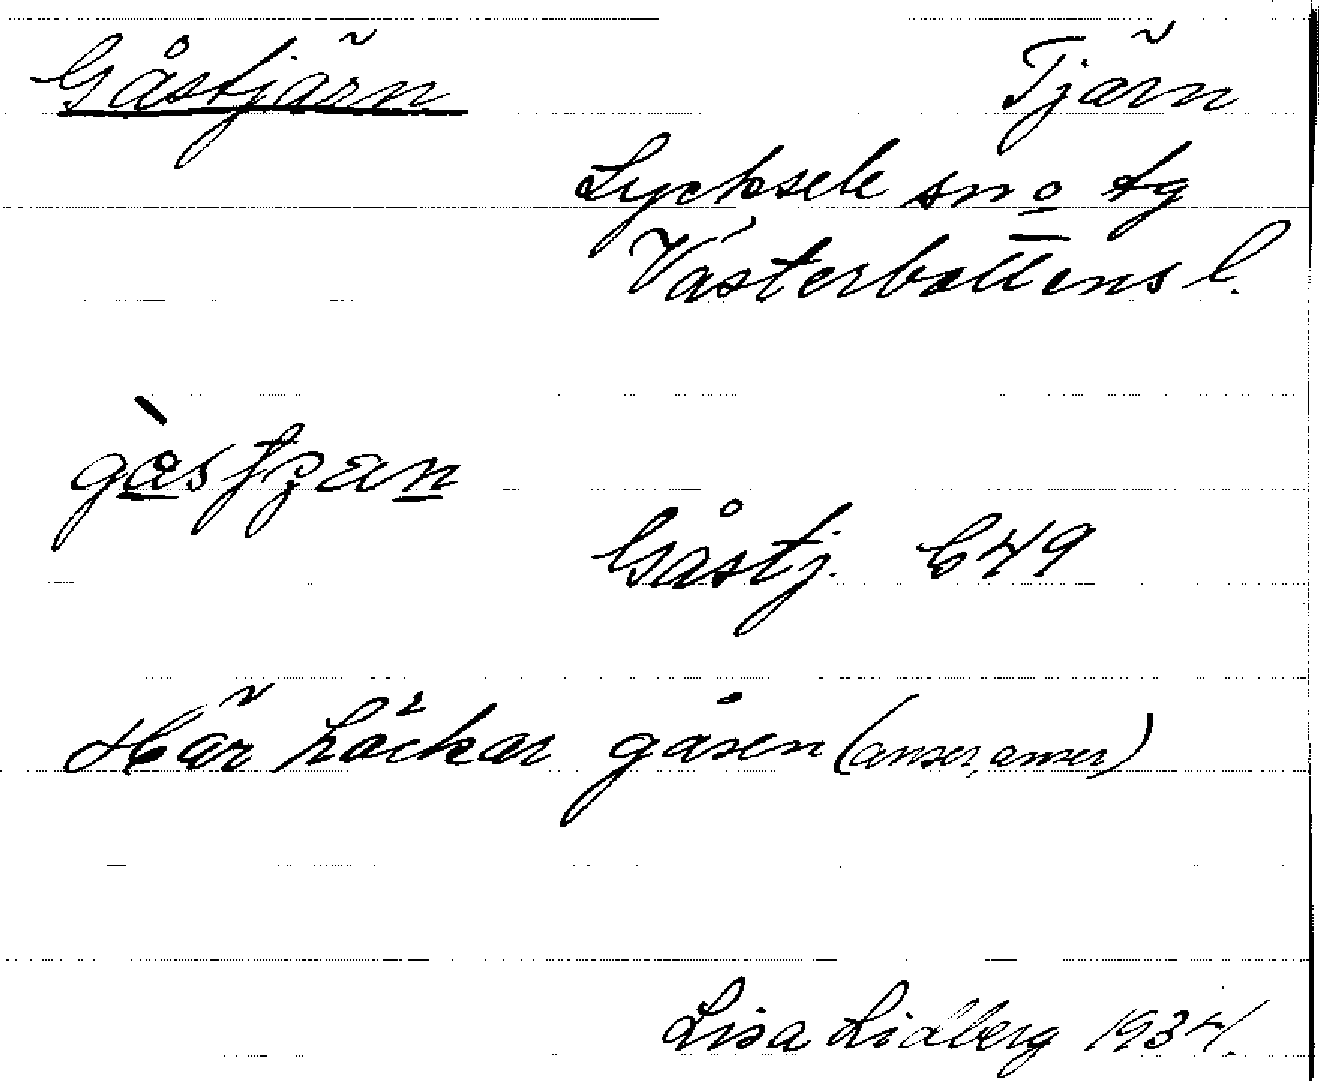 Gåstjärn Tjärn
Lycksele sn o tg
Västerbottens l.
Gåstj. C49
Här häckar gåsen (anser, anser)
Lisa Lidberg 1934.